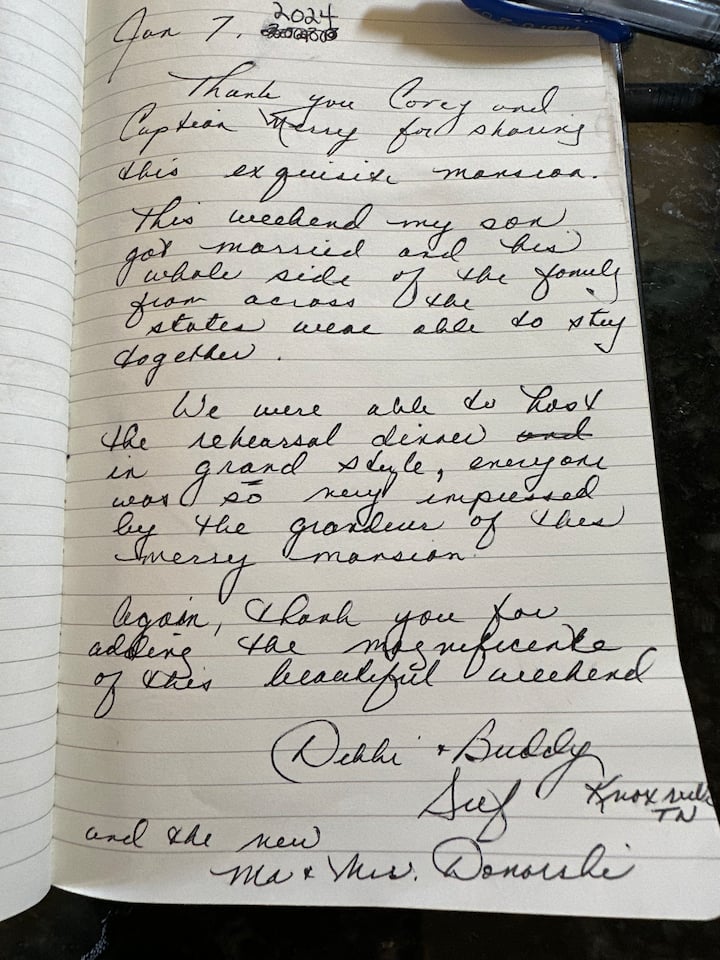 Jan 7, 2024
Thank you Corey and
Captian Merry for sharing
this exquisite mansion.
This weekend my son
got married and his
whole side of the family
from across the
states were able to stay
together.
We were able to host
the rehearsal dinner and
in grand style, everyone
was so very impressed
by the grandeur of this
merry mansion
Again, thank you for
adding the magnificence
of this beautiful weekend
Debbi + Buddy
Knoxville
TN
and the new
Mr + Mrs.